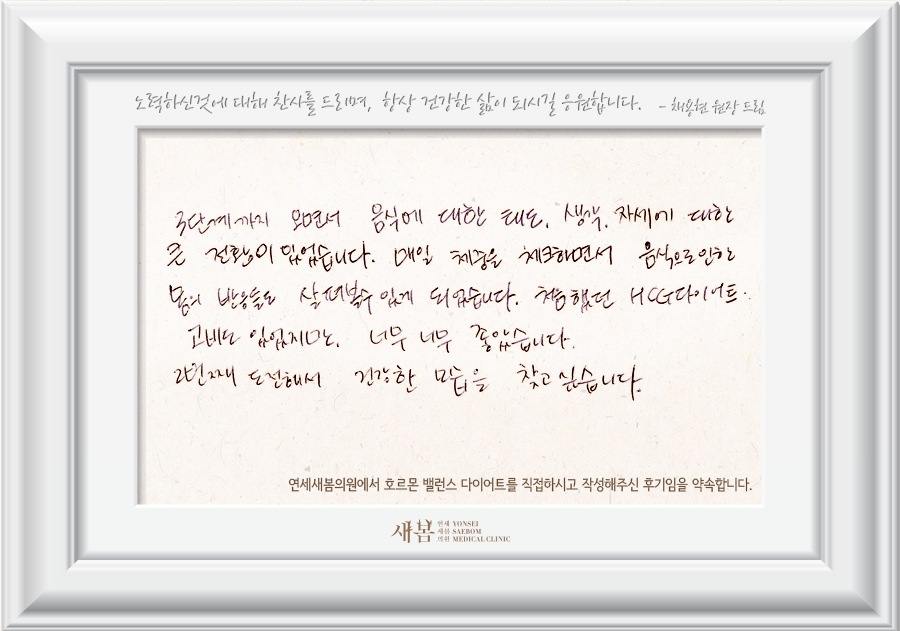 노력하신것에 대해 찬사를 드리며, 항상 건강한 삶이 되시길 응원합니다. - 채용현 원장 드림
3단계까지 오면서 음식에 대한 태도, 생각, 자세에 대한
큰 전환이 있었습니다. 매일 체중을 체크하면서 음식으로인한
몸의 반응들도 살펴볼수 있게 되었습니다. 처음했던 HCG다이어트.
고비도 있었지만, 너무 너무 좋았습니다.
2번째 도전해서 건강한 모습을 찾고싶습니다.
연세새봄의원에서 호르몬 밸런스 다이어트를 직접하시고 작성해주신 후기임을 약속합니다.
새봄 연세 YONSEI
새봄 SAEBOM
의원 MEDICAL CLINIC